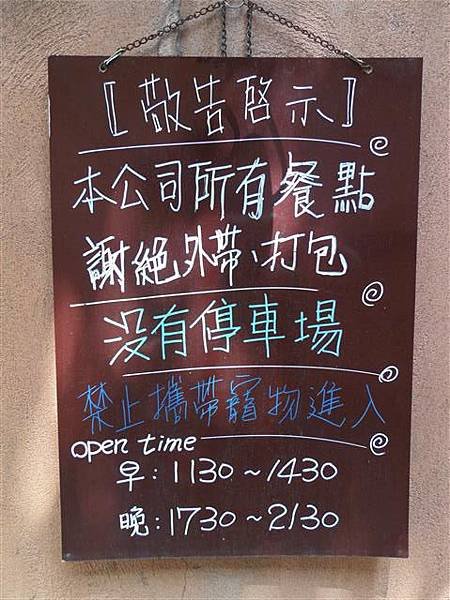 [敬告啓示]
本公司所有餐點
謝絕外帶、打包
没有停車場
禁止攜帶寵物進入
open time
早:1130~1430
晚:1730~2130